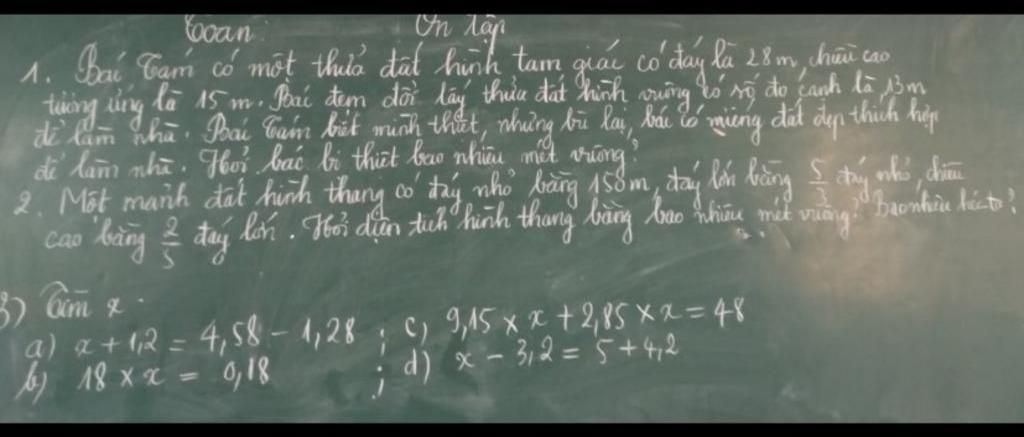 Toán: Ôn tập
1. Bác Tám có một thửa đất hình tam giác có đáy là 28m, chiều cao
tương ứng là 15m. Bác đem đổi lấy thửa đất hình vuông có số đo cạnh là 13m
để làm nhà. Bác Tám biết mình thiệt, nhưng bù lại, bác có miếng đất đẹp thích hợp
để làm nhà. Hỏi bác bị thiệt bao nhiêu mét vuông?
2. Một mảnh đất hình thang có đáy nhỏ bằng 150m, đáy lớn bằng 5/3 đáy nhỏ, chiều
cao bằng 2/5 đáy lớn. Hỏi diện tích hình thang bằng bao nhiêu mét vuông? Bao nhiêu héc-ta?
3) Tìm x.
a) x + 1,2 = 4,58 - 1,28 ; c) 9,15 × x + 2,85 × x = 48
b) 18 × x = 0,18 ; d) x - 3,2 = 5 + 4,2